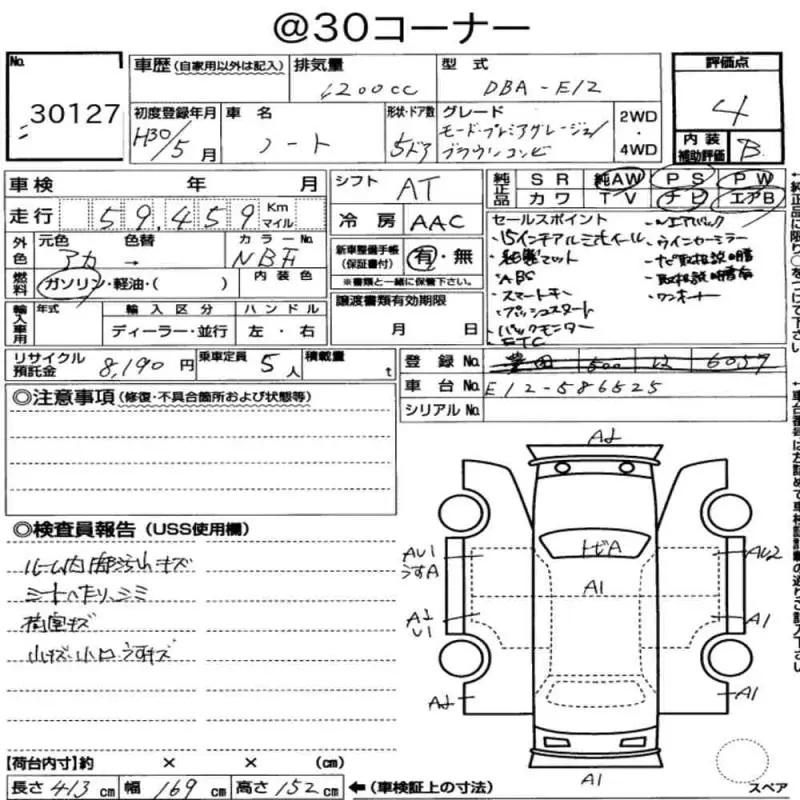 @30コーナー
No. 30127
車歴 (自家用以外は記入)
排気量 1200cc
型式 DBA-E12
評価点 4
初度登録年月 H30/5月
車名 ノート
形状・ドア数 5ドア
グレード モード・プレミア
ブラウンコンビ
2WD・4WD
内装補助評価 B
車検 年 月
走行 59,459 Km マイル
シフト AT
冷房 AAC
純正品 SR 純AW PS PW
カワ TV ナビ エアB
外色 元色 アカ 色替 → カラーNo. NBF
内装色
燃料 ガソリン・軽油・( )
新車整備手帳(保証書付) 有・無
※書類と一緒に保管下さい。
譲渡書類有効期限 月 日
輸入車用 年式 輸入区分 ディーラー・並行 ハンドル 左・右
セールスポイント
・15インチアルミホイール
・ABS
・スマートキー
・プッシュスタート
・バックモニター
・ETC
・エアバック
・ウインカーミラー
・ナビ取扱説明書
・取扱説明書有
・ワンオーナー
リサイクル預託金 8,190円
乗車定員 5人
積載量 t
登録No. 豊田 500 は 6057
車台No. E12-586525
シリアルNo.
◎注意事項(修復・不具合箇所および状態等)
◎検査員報告(USS使用欄)
ルーム内内張汚れキズ
シートヘタリ、シミ
荷室キズ
小キズ小凹うすキズ
A1
トビA
AU1
うすA
AU2
A1
A1
U1
A1
A1
A1
スペア
【荷台内寸】約 × × (cm)
長さ 413 cm 幅 169 cm 高さ 152 cm ←(車検証上の寸法)
↑純正品に限り○をつけて下さい